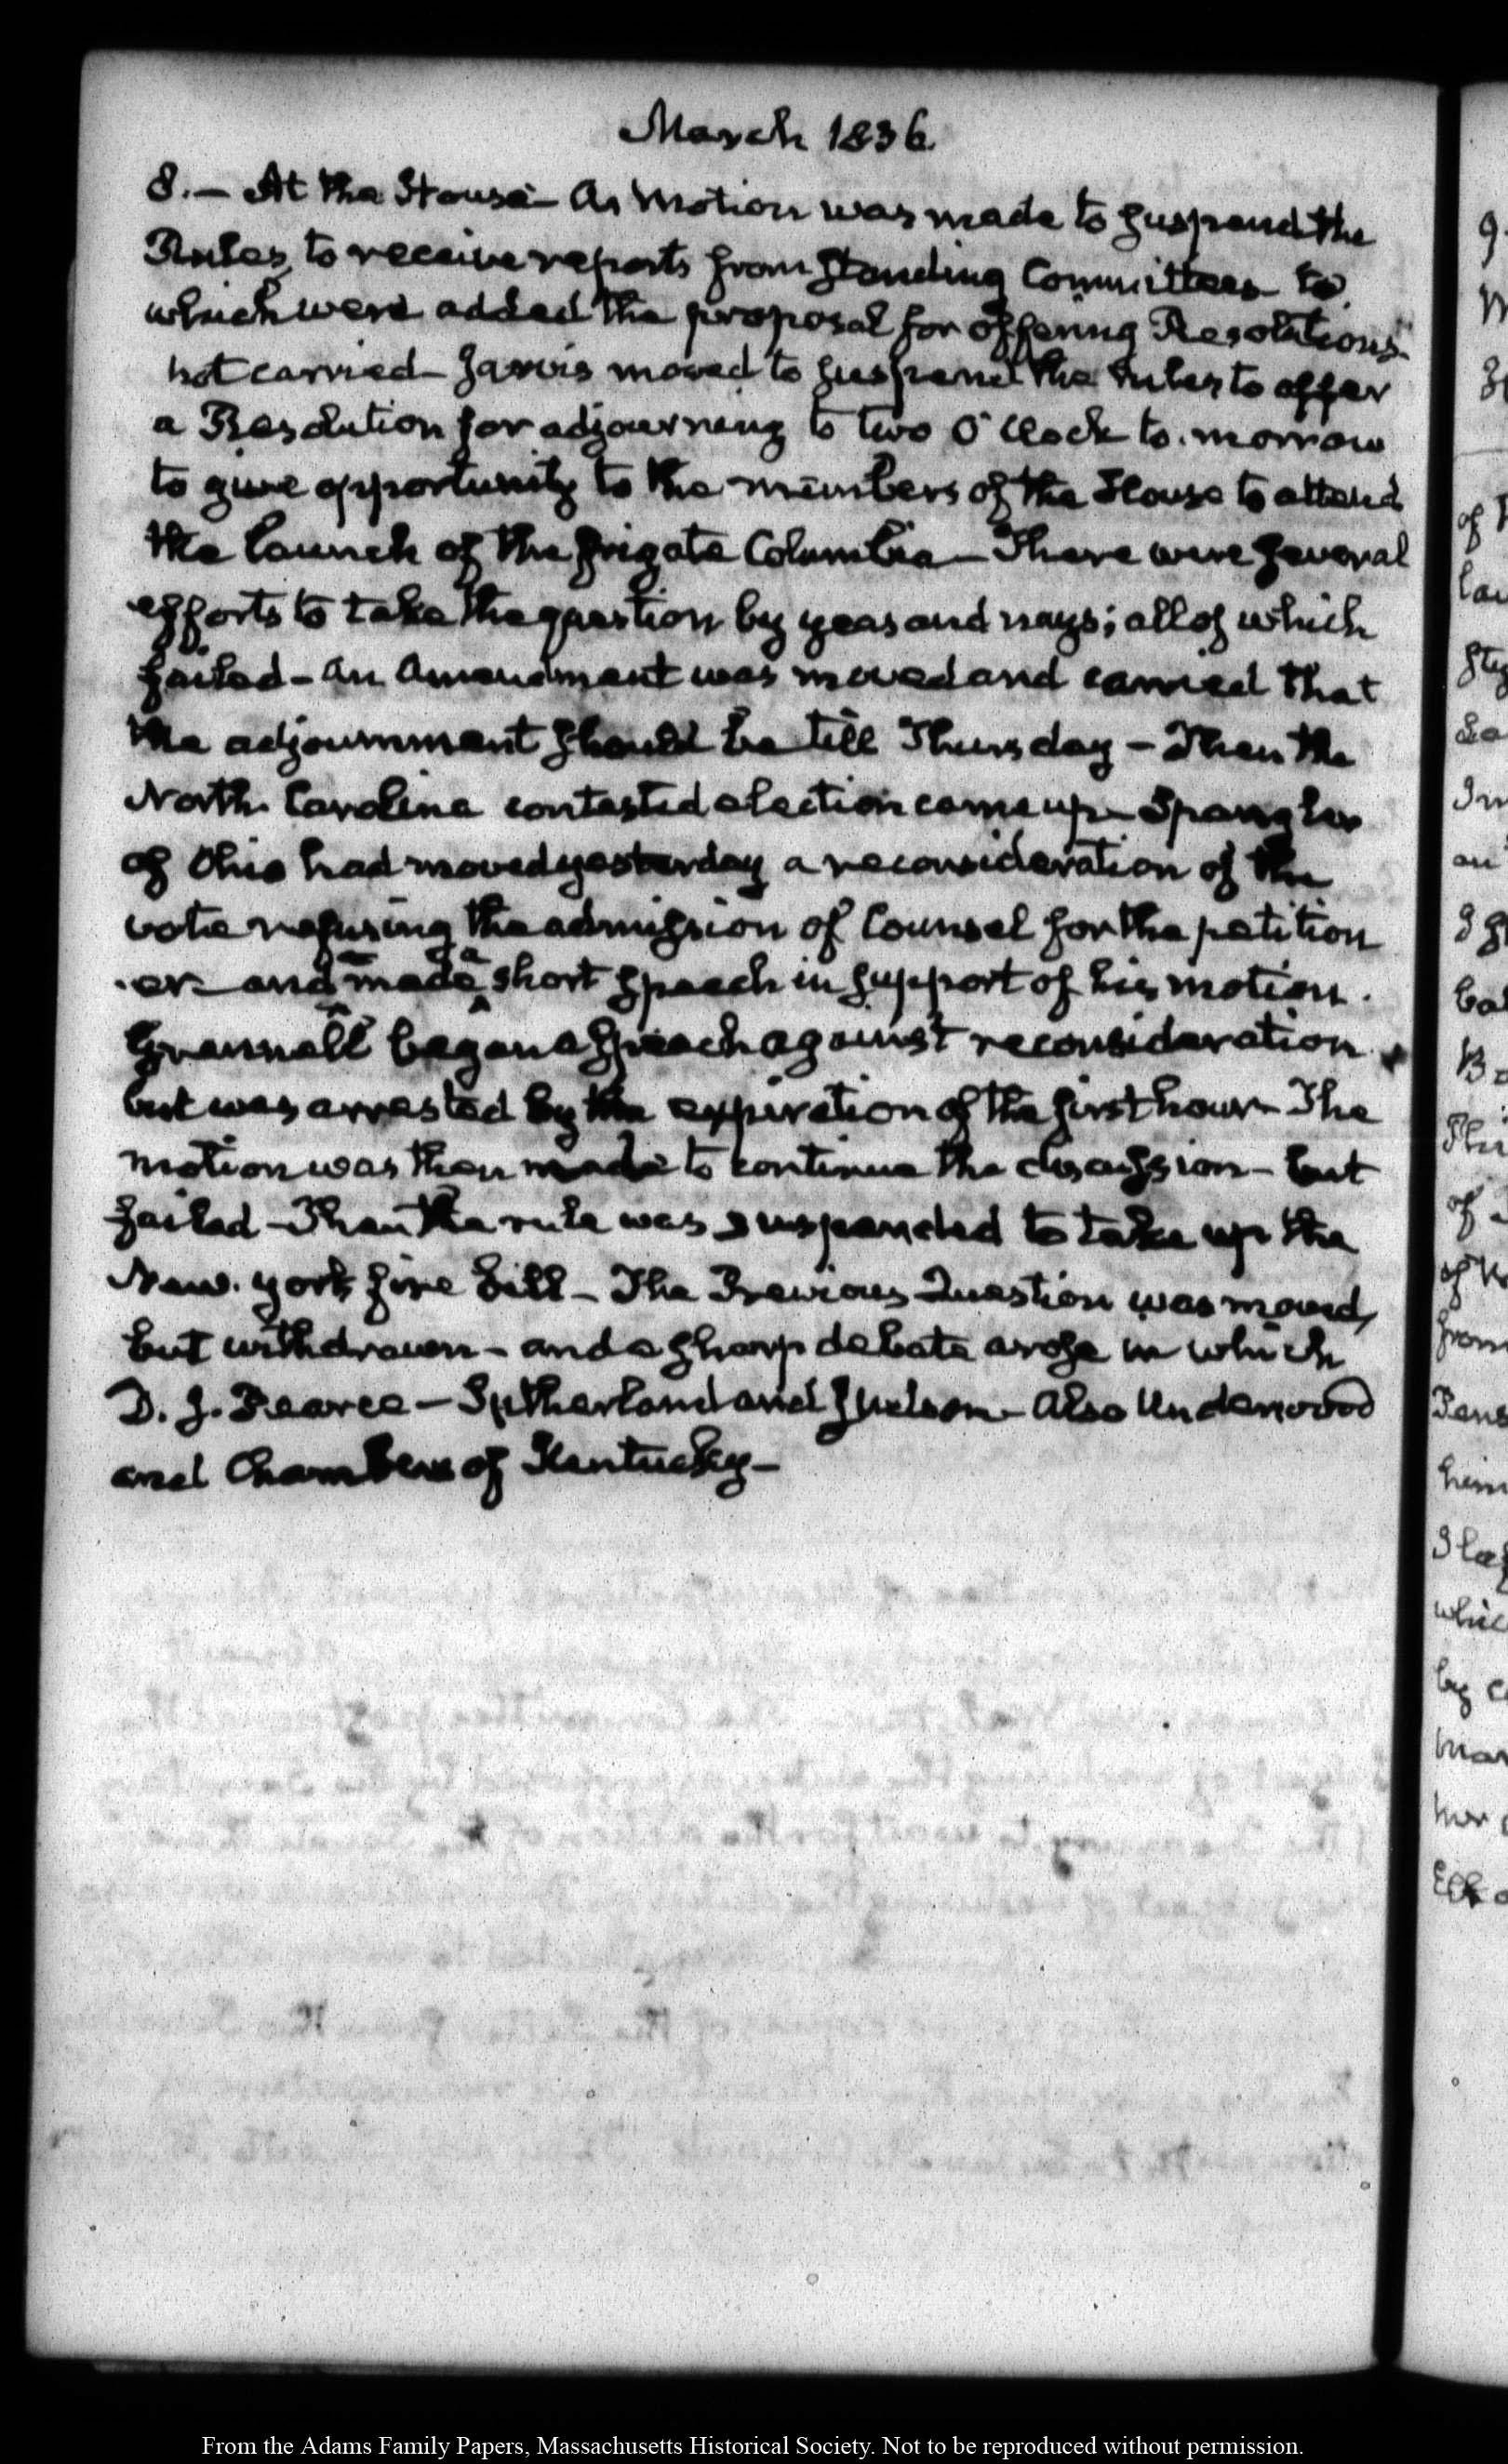 March 1836.
8.— At the House— A Motion was made to suspend the
Rules, to receive reports from standing Committees— to
which were added the proposal for offering Resolutions—
not carried— Jarvis moved to suspend the rules to offer
a Resolution for adjourning to two O'Clock to-morrow
to give opportunity to the members of the House to attend
the launch of the frigate Columbia— There were several
efforts to take the question by yeas and nays; all of which
failed— An Amendment was moved and carried that
the adjournment should be till Thursday— Then the
North Carolina contested election came up— Spangler
of Ohio had moved yesterday a reconsideration of the
vote refusing the admission of Counsel for the petition
-er— and made a short speech in support of his motion.
Grennell began a speech against reconsideration
but was arrested by the expiration of the first hour— The
motion was then made to continue the discussion— but
failed— Then the rule was suspended to take up the
New-York fire bill— The Previous Question was moved,
but withdrawn— and a sharp debate arose in which
D. J. Pearce— Sutherland and Judson— Also Underwood
and Chambers of Kentucky—
9.
of
by
From the Adams Family Papers, Massachusetts Historical Society. Not to be reproduced without permission.